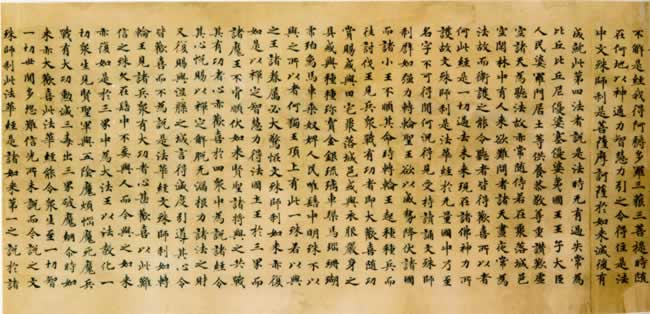 不解是經我得阿耨多羅三藐三菩提時隨
在何地以神通力智慧力引之令得住是法
中文殊師利是菩薩摩訶薩於如來滅後有
成就此第四法者說是法時无有過失常為
比丘比丘尼優婆塞優婆夷國王王子大臣
人民婆羅門居士等供養恭敬尊重讚歎虛
空諸天為聽法故亦常隨侍若在聚落城邑
空閑林中有人來欲難問者諸天晝夜常為
法故而衛護之能令聽者皆得歡喜所以者
何此經是一切過去未來現在諸佛神力所
護故文殊師利是法華經於无量國中乃至
名字不可得聞何況得見受持讀誦文殊師
利譬如強力轉輪聖王欲以威勢降伏諸國
而諸小王不順其命時轉輪王起種種兵而
往討伐王見兵眾戰有功者即大歡喜隨功
賞賜或與田宅聚落城邑或與衣服嚴身之
具或與種種珍寶金銀琉璃車璖馬瑙珊瑚
虎珀象馬車乘奴婢人民唯髻中明珠不以
與之所以者何獨王頂上有此一珠若以與
之王諸眷屬必大驚怪文殊師利如來亦復
如是以禪定智慧力得法國土王於三界而
諸魔王不肯順伏如來賢聖諸將與之共戰
其有功者心亦歡喜於四眾中為說諸經令
其心悅賜以禪定解脫无漏根力諸法之財
又復賜與涅槃之城言得滅度引導其心令
皆歡喜而不為說是法華經文殊師利如轉
輪王見諸兵眾有大功者心甚歡喜以此難
信之珠久在髻中不妄與人而今與之如來
亦復如是於三界中為大法王以法教化一
切眾生見賢聖軍與五陰魔煩惱魔死魔共
戰有大功勳滅三毒出三界破魔網爾時如
來亦大歡喜此法華經能令眾生至一切智
一切世間多怨難信先所未說而今說之文
殊師利此法華經是諸如來第一之說於諸